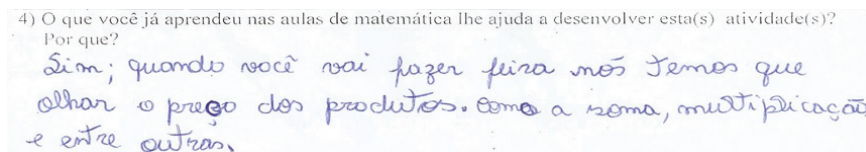 4) O que você já aprendeu nas aulas de matemática lhe ajuda a desenvolver esta(s) atividade(s)?
Por que?
Sim; quando você vai fazer feira nós temos que
olhar o preço dos produtos. como a soma, multiplicação
e entre outras.